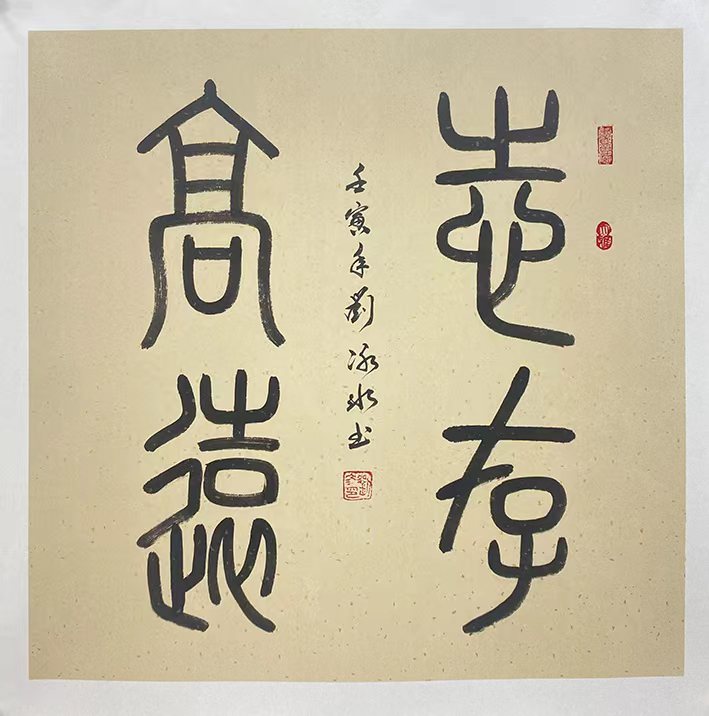 志存
高遠
壬寅年劉冰水书